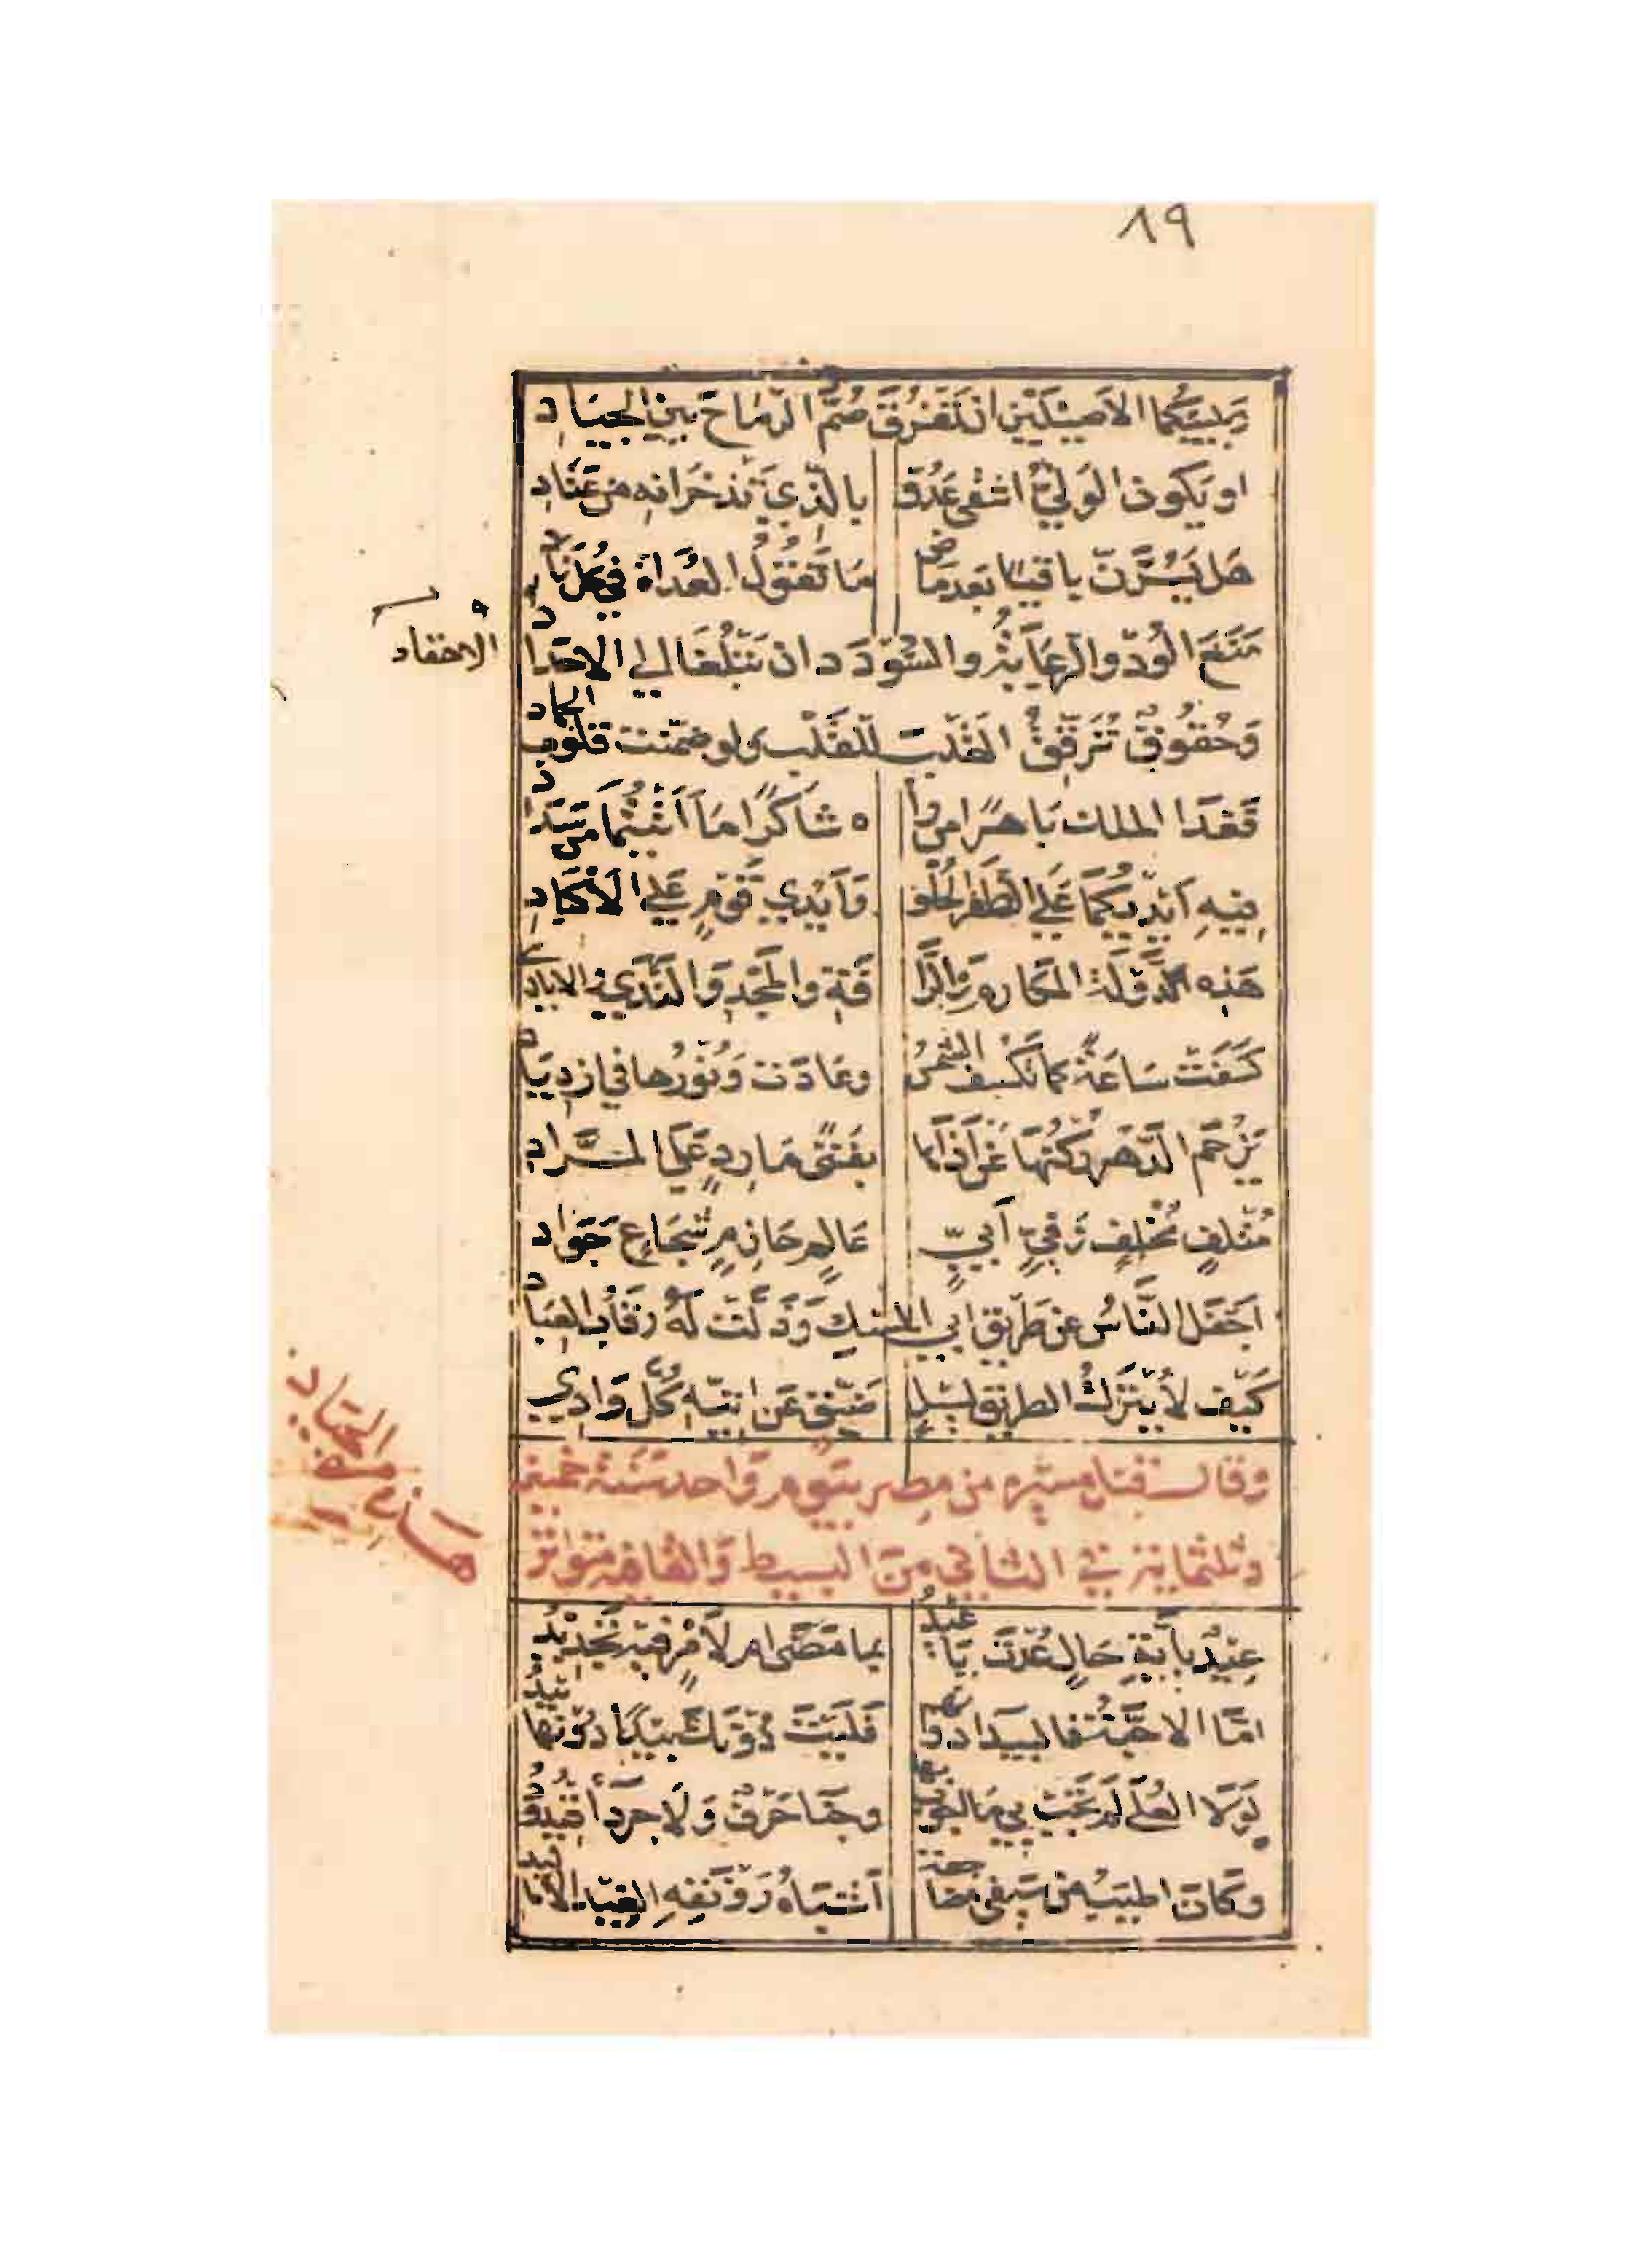 ٨٩
وبلبيكما الاصيلين ان تفرق صم الرماح بين الجياد
او يكون الولي اشقى عدو بالذي تذخرانه من عتاد
هل يسرن باقيا بعد ماض ما تقول العداة في كل ناد
منع الود والرعاية والسودد ان تبلغا الي الاحقاد
الاحقاد
وحقوق ترقق القلب للقلب ولو ضمنت قلوب الجماد
فغدا الملك باهرا من راه شاكرا ما اتيتما من سداد
فيه ايديكما علي الظفر الحلو وايدي قوم علي الاكباد
هذه دولة المكارم والرا فة والمجد والندي والايادي
كسفت ساعة كما تكسف الشمس وعادت ونورها في ازدياد
يزحم الدهر ركنها عن اذاها بفتى مارد علي المراد
متلف مخلف وفي ابي عالم حازم شجاع جواد
اجفل الناس عن طريق ابي المسك وذلت له رقاب العباد
كيف لا يترك الطريق لسيل ضيق عن اتيه كل وادي
وقال قبل مسيره من مصر بيوم واحد سنة خمسين
وثلثماية في الثاني من البسيط والقافية متواتر
عيد باية حال عدت يا عيد بما مضى ام لامر فيه تجديد
اما الاحبة فالبيدا دونهم فليت دونك بيدا دونها بيد
لولا العلي لم تجب بي ما اجوب بها وجنا حرف ولا جردا قيدود
وكان اطيب من سيفي مضاجعة اشباه رونقه الغيد الاماليد